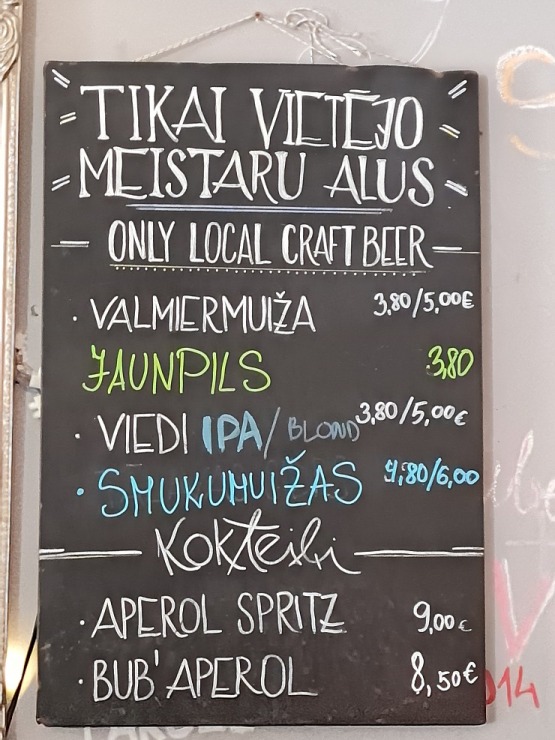 TIKAI VIETĒJO
MEISTARU ALUS
ONLY LOCAL CRAFT BEER
· VALMIERMUIŽA 3,80/5,00€
JAUNPILS 3,80
· VIEDI IPA/BLOND 3,80/5,00€
· SMUKUMUIŽAS 4,80/6,00
Kokteiļi
· APEROL SPRITZ 9,00€
· BUB'APEROL 8,50€
014